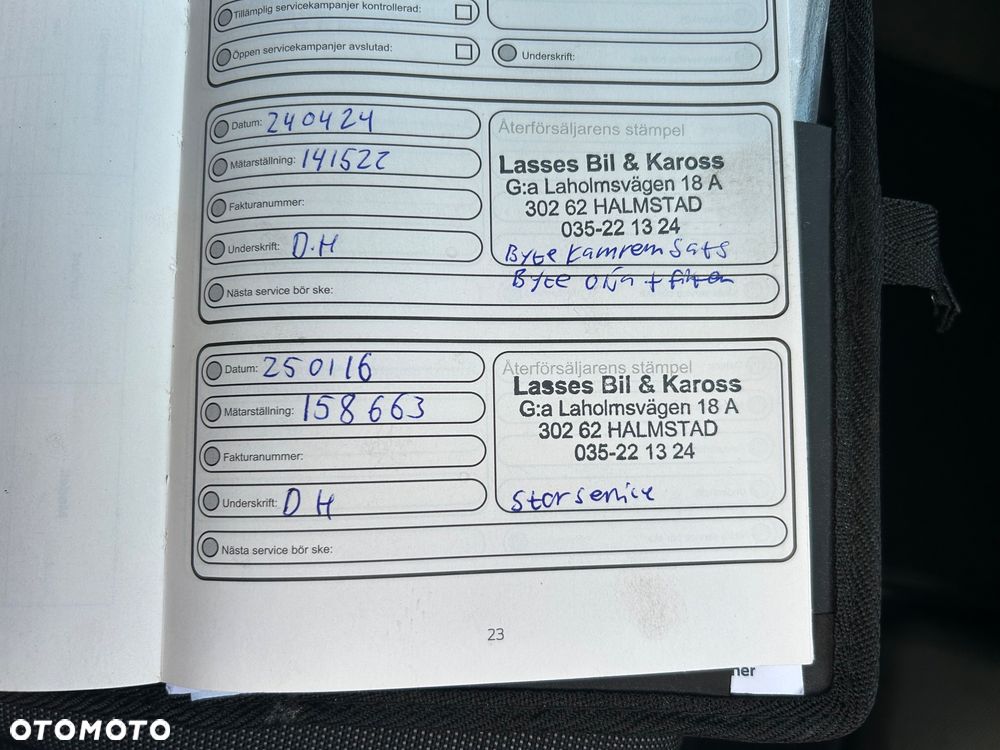 Tillämplig servicekampanjer kontrollerad:
Öppen servicekampanjer avslutad:
Underskrift:
Datum: 240424
Mätarställning: 141522
Fakturanummer:
Underskrift: D.H
Nästa service bör ske:
Återförsäljarens stämpel
Lasses Bil & Kaross
G:a Laholmsvägen 18 A
302 62 HALMSTAD
035-22 13 24
Byte kamrem sats
Byte olja + filter
Datum: 250116
Mätarställning: 158663
Fakturanummer:
Underskrift: D H
Nästa service bör ske:
Återförsäljarens stämpel
Lasses Bil & Kaross
G:a Laholmsvägen 18 A
302 62 HALMSTAD
035-22 13 24
Stor service
23
OTOMOTO